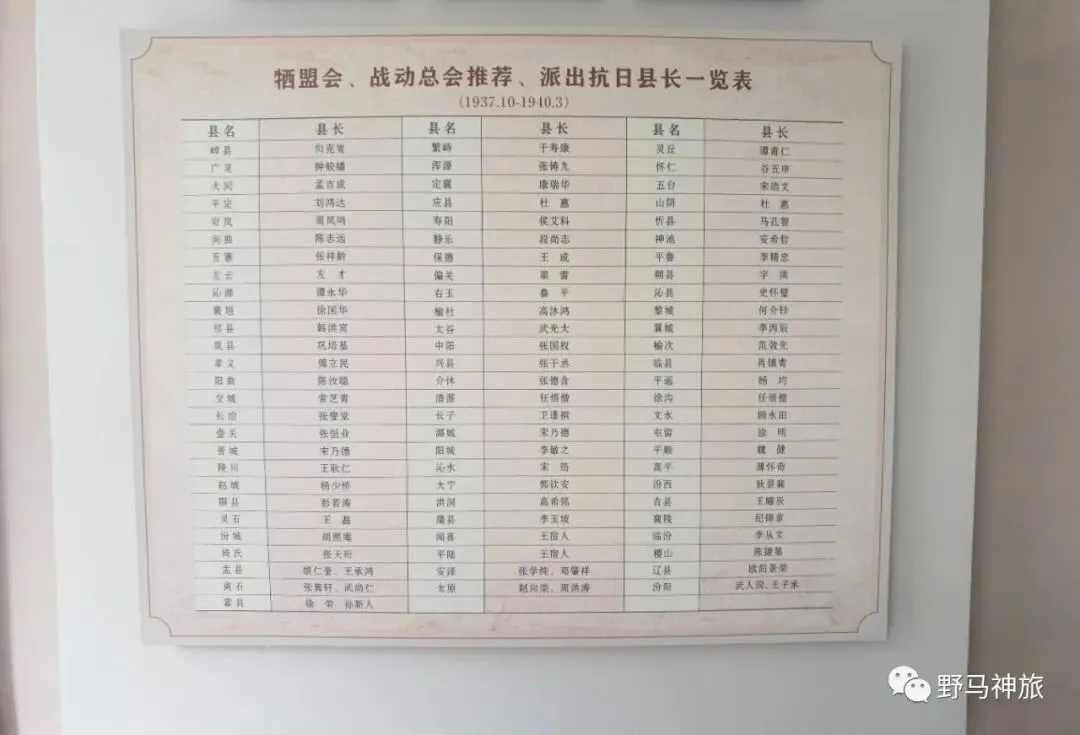 牺盟会、战动总会推荐、派出抗日县长一览表
(1937.10-1940.3)
县名 县长 县名 县长 县名 县长
崞县 繁峙 于寿康 灵丘 谭甫仁
广灵 钟蛟蟠 浑源 张铸九 怀仁 谷五申
大同 孟吉成 定襄 康瑞华 五台
平定 刘鸿达 应县 杜惠 山阴 杜惠
岢岚 周凤鸣 寿阳 侯艾科 忻县 马孔智
河曲 陈志远 静乐 段尚志 神池 安希哲
五寨 张祥龄 保德 王成 平鲁 李精忠
左云 左才 偏关 梁雷 朔县
沁源 谭永华 右玉 鲁平 沁县 史怀璧
襄垣 徐国华 榆社 高沐鸿 黎城 何介
祁县 韩洪宾 太谷 武光大 翼城 李丙辰
岚县 巩培基 中阳 张国权 榆次 范效先
孝义 傅立民 兴县 张干丞 临县 肖镇青
阳曲 陈汝聪 介休 张德含 平遥 杨
交城 常芝青 清源 任悟僧 徐沟 任悟僧
长治 长子 卫逢祺 文水 顾永田
壶关 张恒业 潞城 宋乃德 屯留 徐明
晋城 宋乃德 阳城 李敏之 平顺 魏健
陵川 王耿仁 沁水 宋筠 高平 薄怀奇
赵城 杨少桥 大宁 郭钦安 汾西 狄景襄
隰县 彭若涛 洪洞 高希铭 吉县
灵石 王磊 蒲县 李玉坡 襄陵 纪锦章
汾城 胡熙庵 闻喜 王宿人 临汾 李从文
猗氏 张天珩 平陆 王宿人 稷山 陈捷第
盂县 胡仁奎、王承鸿 安泽 张学纯、邓肇祥 辽县 欧阳景荣
离石 武尚仁 太原 赵向荣、周洪涛 汾阳 王子承
霍县 徐荣、孙新人
野马神旅